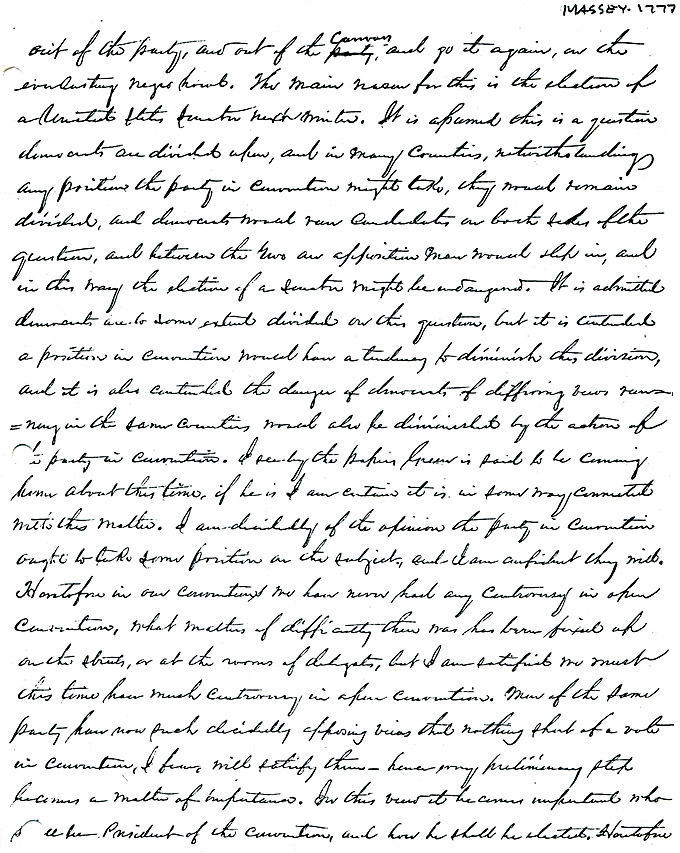 MASSEY. 1777
out of the party, and out of the party, Canvass and go it again, on the
everlasting negro hunt. The main reason for this is the election of
a United States Senator next winter. It is assumed this is a question
democrats are divided upon, and in many counties, notwithstanding
any position the party in convention might take, they would remain
divided, and democrats would run candidates on both sides of the
question, and between the two an opposition man would slip in, and
in this way the election of a Senator might be endangered. It is admitted
democrats are to some extent divided on this question, but it is contended
a position in convention would have a tendency to diminish this division,
and it is also contended the danger of democrats of differing views run=
=ning in the same counties would also be diminished by the action of
party in convention. I see by the papers is said to be coming
home about this time, if he is I am certain it is in some way connected
with this matter. I am decidedly of the opinion the party in convention
ought to take some position on the subject, and I am confident they will.
Heretofore in our conventions we have never had any controversy in open
convention, what matter of difficulty there was has been fixed up
on the streets, or at the rooms of delegates, but I am satisfied we must
this time have much controversy in open convention. Men of the same
party have now such decidedly opposing views that nothing short of a vote
in convention, I fear, will satisfy them - hence every preliminary step
becomes a matter of importance. In this view it becomes important who
President of the convention, and how he shall be elected. Heretofore